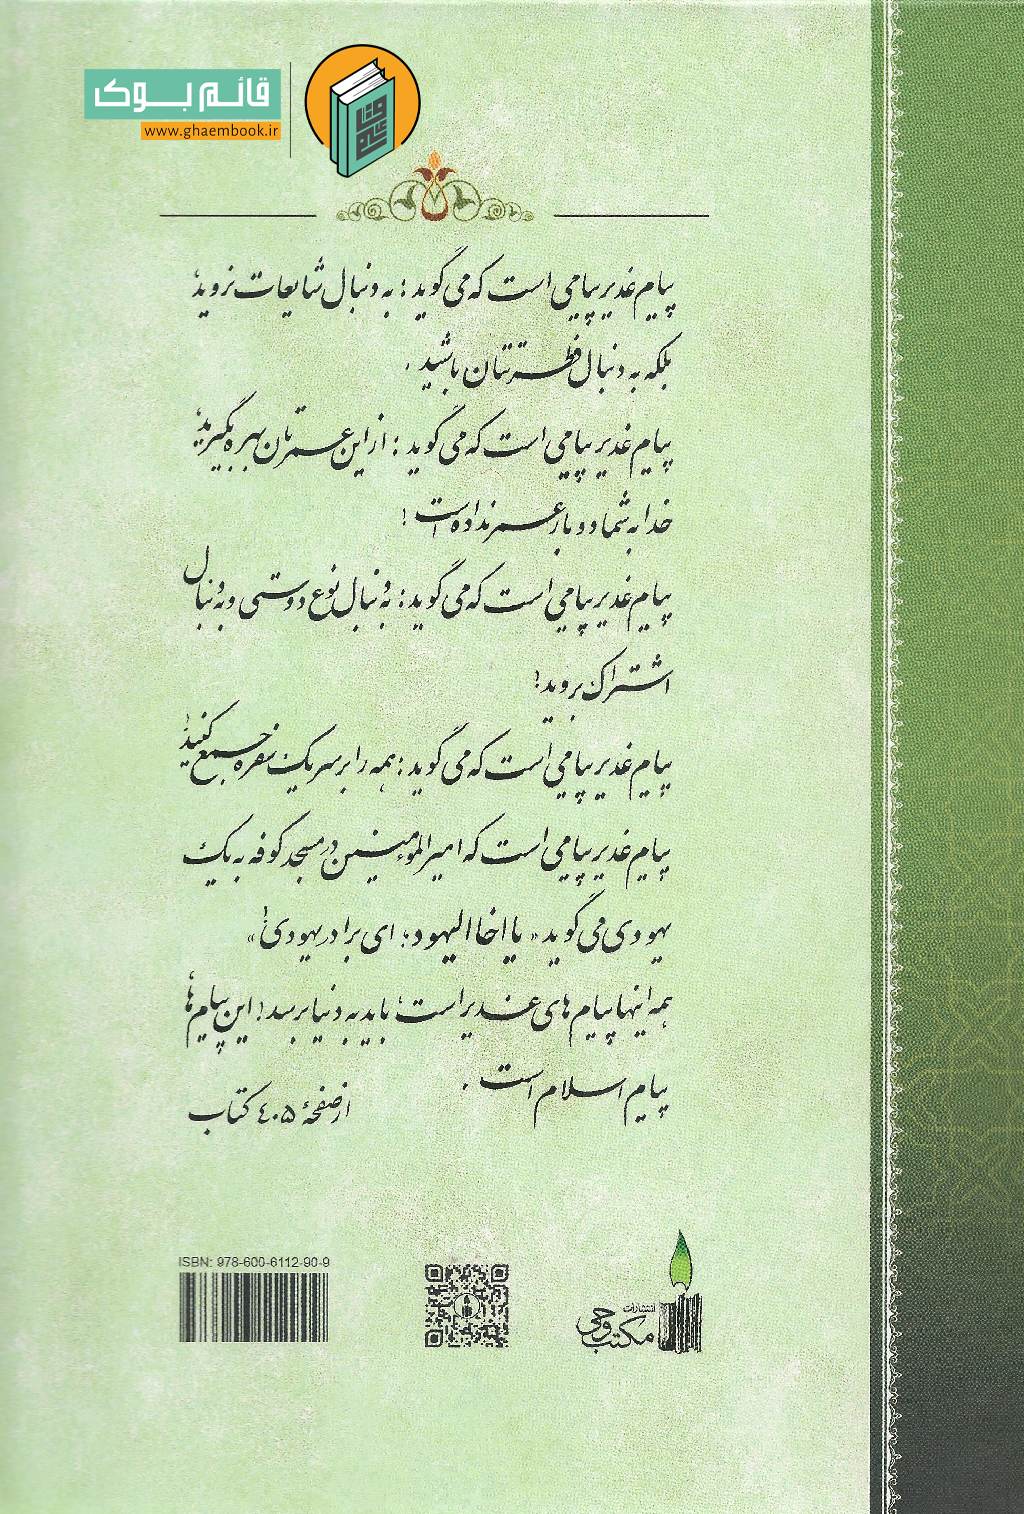 قائم بوک
www.ghaembook.ir
پیام غدیر پیامی است که می گوید: به دنبال شایعات نروید،
بلکه به دنبال فطرتتان باشید.
پیام غدیر پیامی است که می گوید: از این عمرتان بهره بگیرید،
خدا به شما دو بار عمر نداده است!
پیام غدیر پیامی است که می گوید: به دنبال نوع دوستی و به دنبال
اشتراک بروید!
پیام غدیر پیامی است که می گوید: همه را بر سر یک سفره جمع کنید!
پیام غدیر پیامی است که امیرالمؤمنین در مسجد کوفه به یک
یهودی می گوید «یا اخا الیهود؛ ای برادر یهودی!»
همه اینها پیام های غدیر است؛ باید به دنیا برسد! این پیام ها،
پیام اسلام است.
از صفحهٔ ٤٠٥ کتاب
ISBN: 978-600-6112-90-9
انتشارات
مکتب وحی